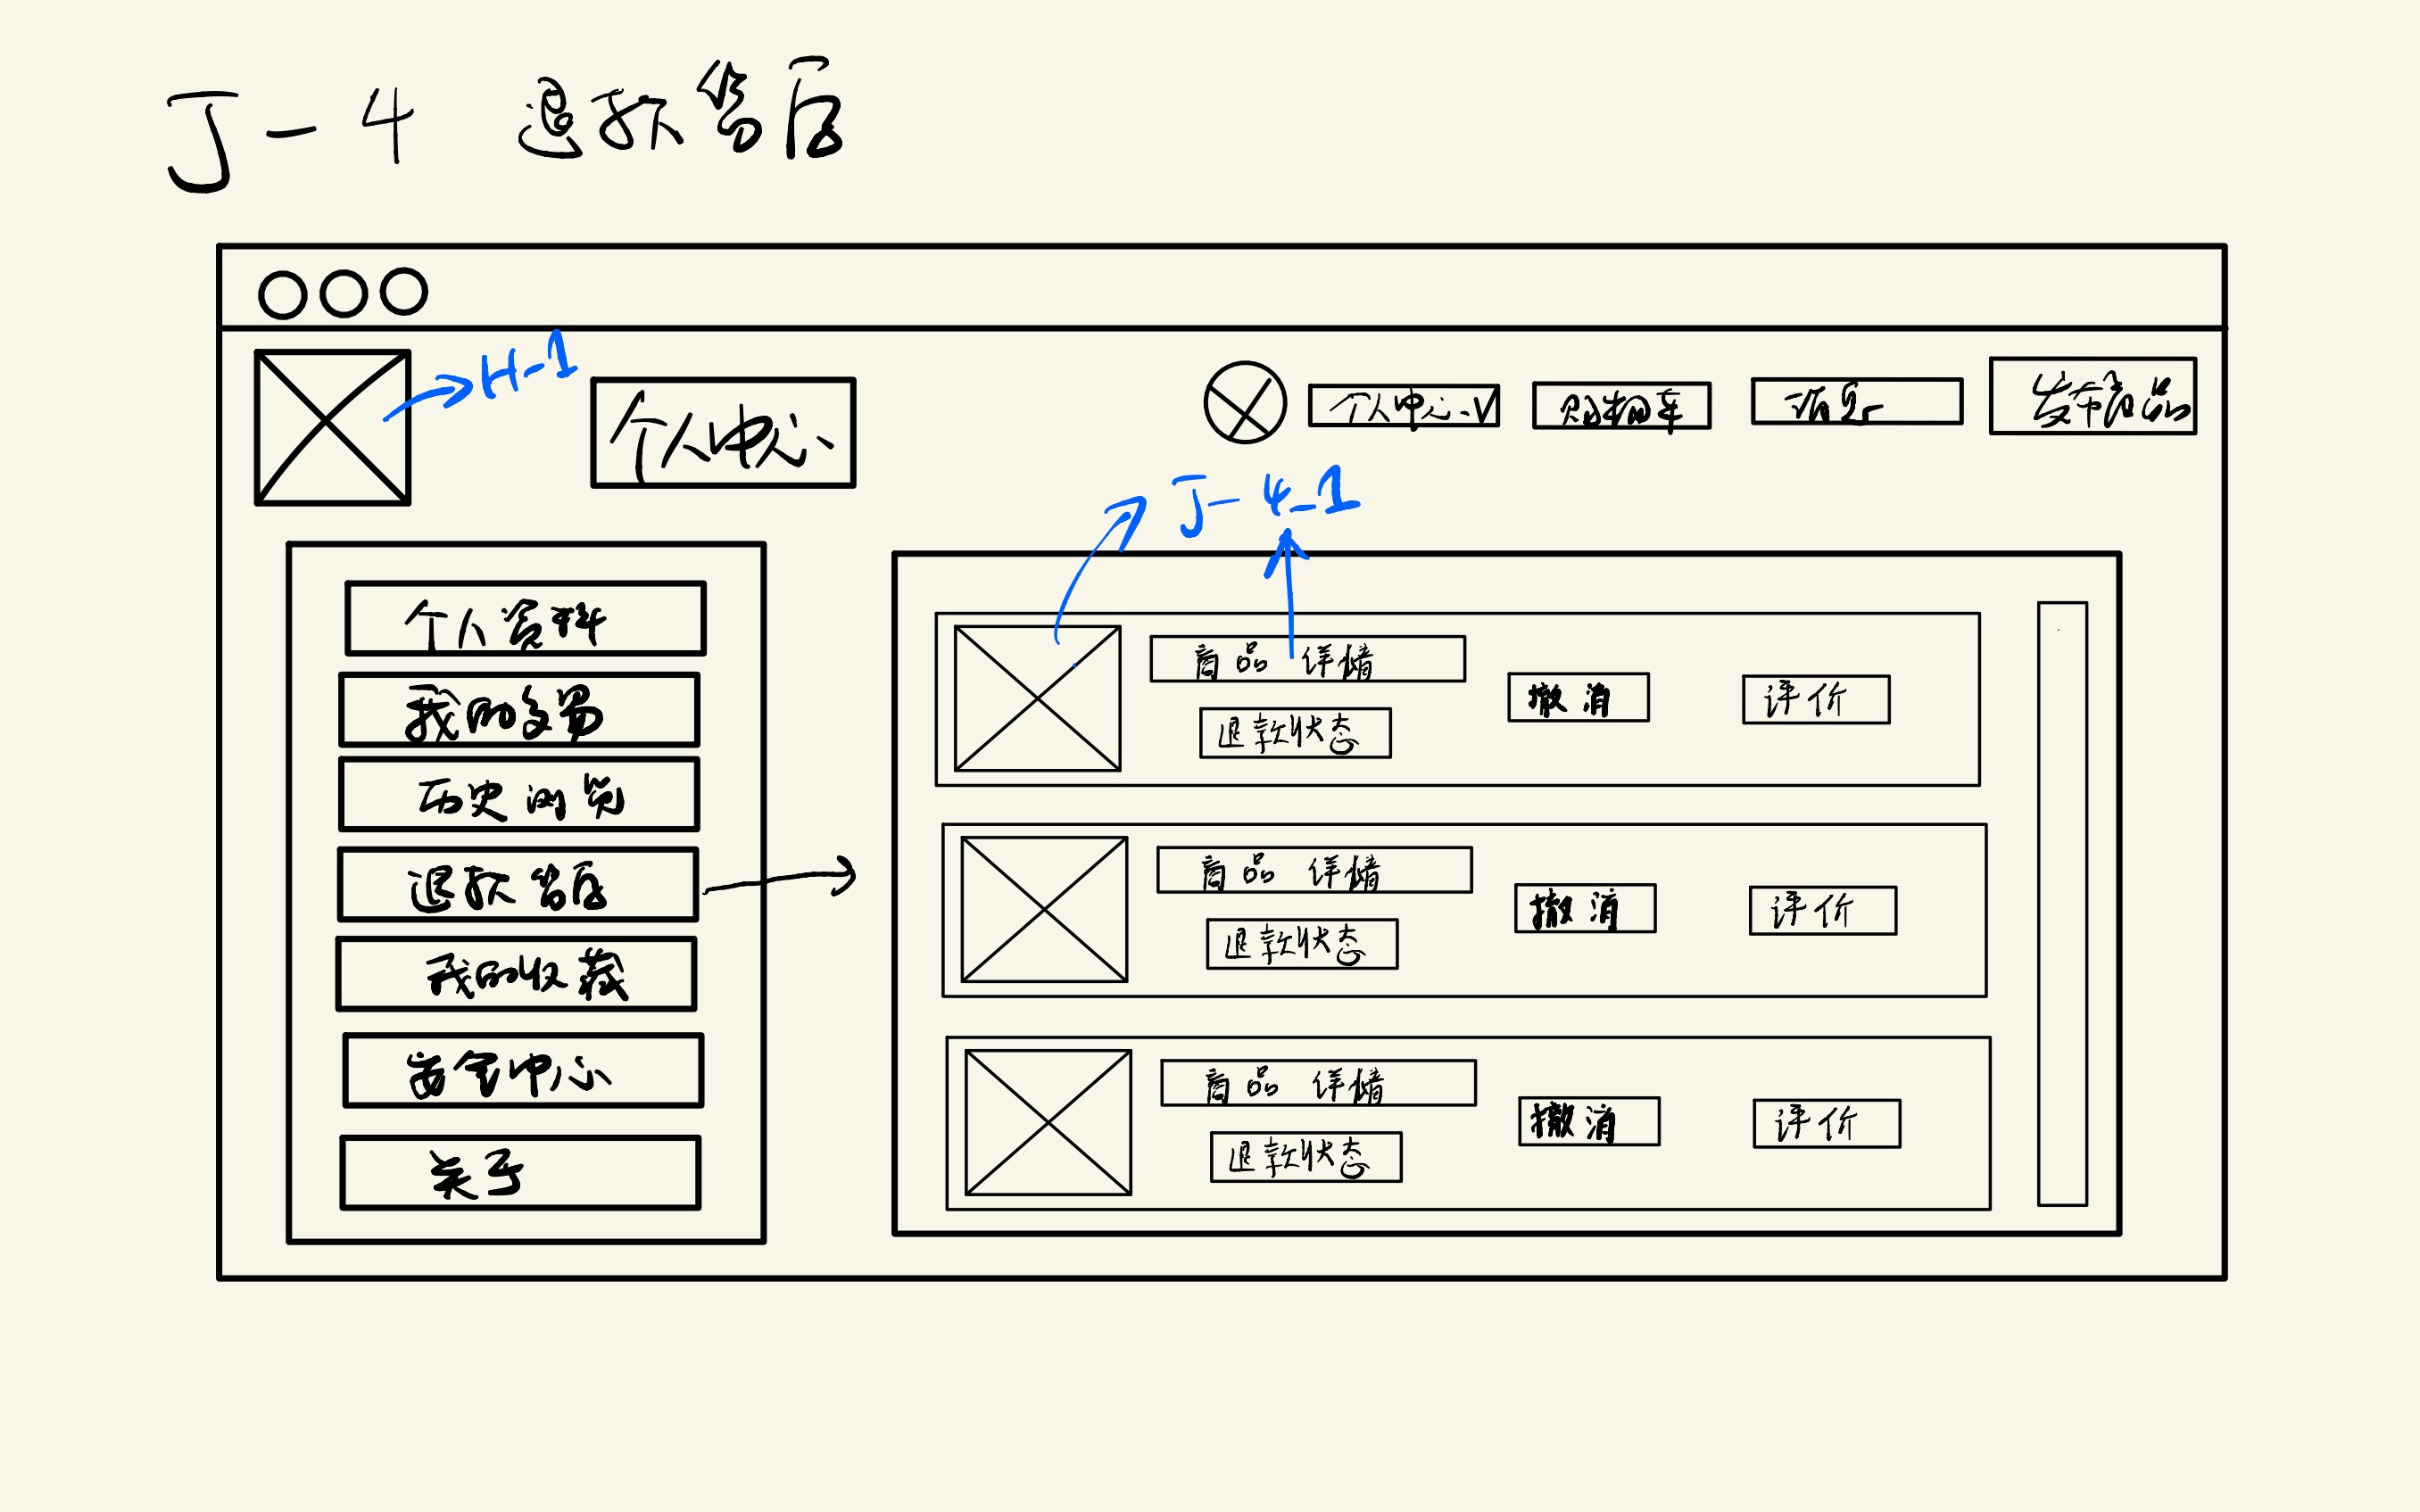 J-4 退款售后
H-1
个人中心
个人中心
购物车
消息
发布商品
J-4-1
个人资料
我的交易
历史浏览
退款售后
我的收藏
安全中心
关于
商品 详情
退款状态
撤消
评价
商品 详情
退款状态
撤消
评价
商品 详情
退款状态
撤消
评价